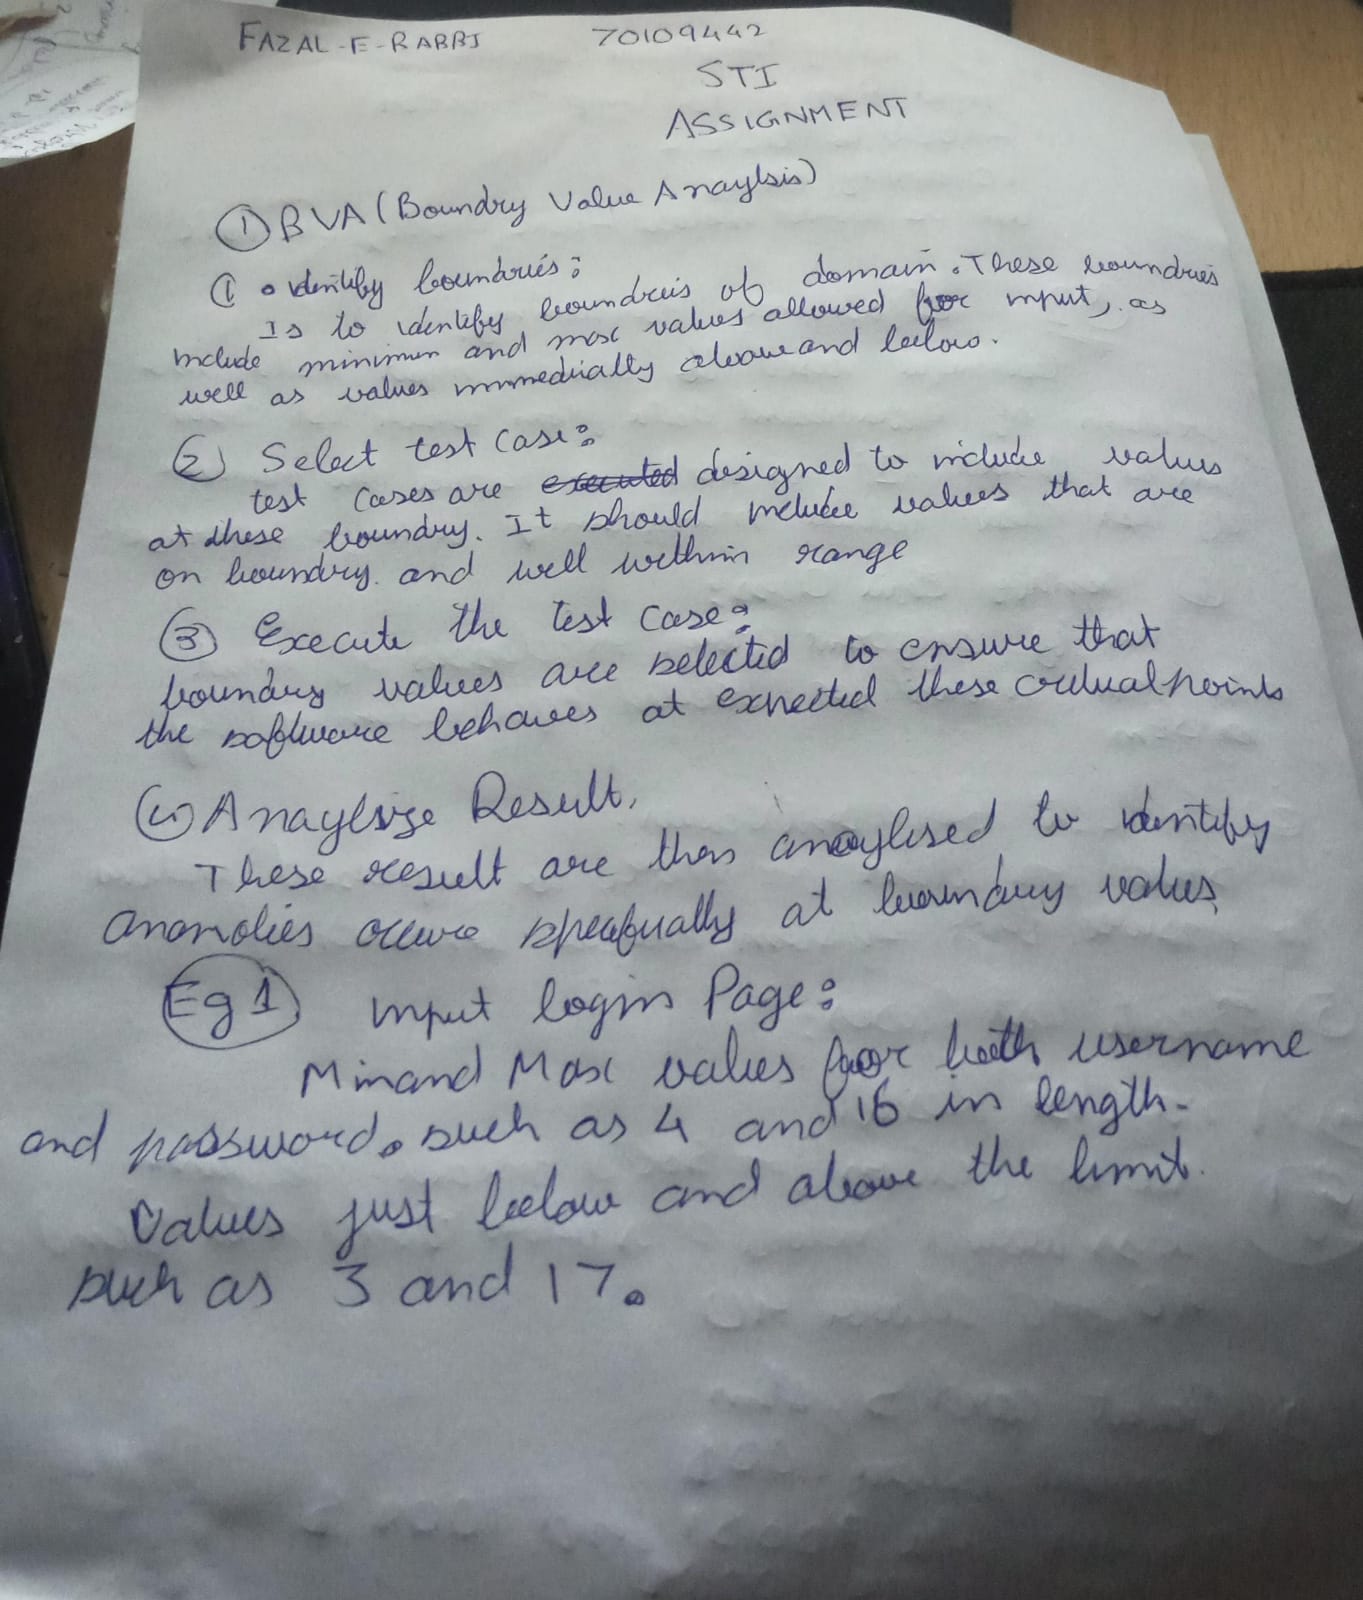 FAZAL-E-RABBI 70109442
STI
ASSIGNMENT
① BVA (Boundry Value Anaylsis)
① • identify boundries:
Is to identify boundreis of domain. These boundries
include minimum and max values allowed for input, as
well as values immedially above and below.
② Select test case:
test cases are executed designed to include values
at these boundry. It should include values that are
on boundry. and well within range
③ Execute the test case:
boundry values are selected to ensure that
the software behaves at expected these critical points
④ Anaylsize Result.
These result are then anaylised to identify
anomolies occure specifually at boundry values.
Eg 1 input login Page:
Min and Max values for both username
and password. such as 4 and 16 in length.
Values just below and above the limit.
such as 3 and 17.